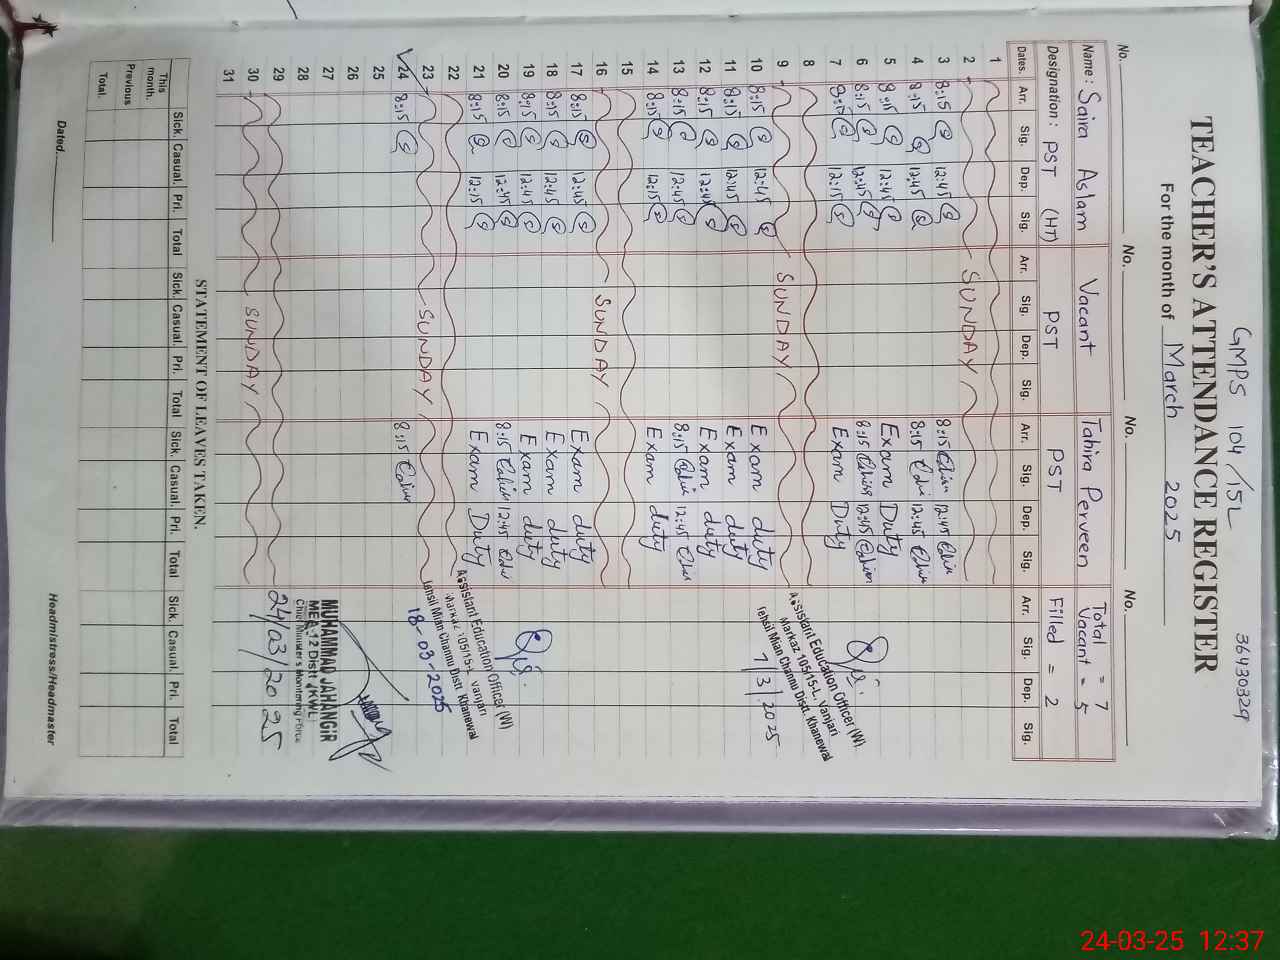 GMPS 104/15L 36430329
TEACHER'S ATTENDANCE REGISTER
For the month of March 2025
No. No. No. No.
Name: Saira Aslam Vacant Tahira Perveen Total = 7
Vacant = 5
Designation: PST (HT) PST PST Filled = 2
Dates. Arr. Sig. Dep. Sig. Arr. Sig. Dep. Sig. Arr. Sig. Dep. Sig. Arr. Sig. Dep. Sig.
1
2 SUNDAY
3 8:15 12:45 8:15 12:45
4 8:15 12:45 8:15 12:45
5 8:15 12:45 Exam Duty
6 8:15 12:45 8:15 12:45
7 8:15 12:15 Exam Duty
8
9 SUNDAY
10 8:15 12:45 Exam duty
11 8:15 12:45 Exam duty
12 8:15 12:45 Exam duty
13 8:15 12:45 8:15 12:45
14 8:15 12:15 Exam duty
15
16 SUNDAY
17 8:15 12:45 Exam duty
18 8:15 12:45 Exam duty
19 8:15 12:45 Exam duty
20 8:15 12:45 8:15 12:45
21 8:15 12:15 Exam Duty
22
23 SUNDAY
24 8:15 8:15
25
26
27
28
29
30 SUNDAY
31
Assistant Education Officer (W)
Markaz 105/15-L, Vanjari
Tehsil Mian Channu Distt. Khanewal
7/3/2025
Assistant Education Officer (W)
Markaz 105/15-L, Vanjari
Tehsil Mian Channu Distt. Khanewal
18-03-2025
MUHAMMAD JAHANGIR
MEA-12 Distt (KWL)
Chief Minister's Monitoring Force
24/03/2025
STATEMENT OF LEAVES TAKEN.
Sick. Casual. Pri. Total Sick. Casual. Pri. Total Sick. Casual. Pri. Total Sick. Casual. Pri. Total
This month.
Previous
Total.
Dated. Headmistress/Headmaster
24-03-25 12:37